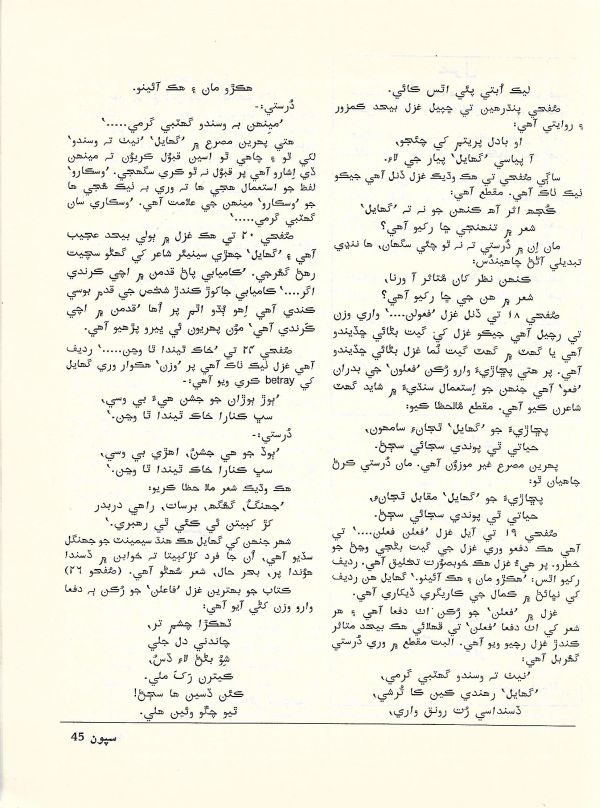 ليڪ اُبتي پئي اٿس کائي.
صُفحي پنڌرهين تي ڇپيل غزل بيحد ڪمزور
۽ روايتي آهي:
او بادل پريتم کي چئجو،
آ پياسي ’گهايل‘ پيار جي لاءِ.
ساڳي صُفحي تي هڪ وڌيڪ غزل ڏنل آهي جيڪو
نيڪ ٺاڪ آهي. مقطع آهي:
ڪُجھ اثر آھ ڪنهن جو نہ تہ ’گهايل‘
شعر ۾ تنهنجي ڇا رکيو آهي؟
مان اِن ۾ دُرستي تہ نہ ٿو چئي سگهان، ها ننڍي
تبديلي آڻڻ چاهيندُس:
ڪنهن نظر کان مُتاثر آ ورنا،
شعر ۾ هن جي ڇا رکيو آهي؟
صُفحي ١٨ تي ڏنل غزل ’فعولن....‘ واري وزن
تي رچيل آهي جيڪو غزل کي گيت بڻائي ڇڏيندو
آهي يا گهٽ ۾ گهٽ گيت نُما غزل بڻائي ڇڏيندو
آهي. پر هتي پڇاڙيءَ وارو رُڪن ’فعولن‘ جي بدران
’فعو‘ آهي جنهن جو اِستعمال سنڌيءَ ۾ شايد گهٽ
شاعرن ڪيو آهي. مقطع مُلاحظا ڪيو:
پڇاڙيءَ جو ’گهايل‘ ٿڃانءِ سامهون،
حياتي ٿي پوندي سجائي سڄڻ.
پهرين مصرع غير موزوُن آهي. مان دُرستي ڪرڻ
چاهيان ٿو:
پڇاڙيءَ جو ’گهايل‘ مقابل ٿڃانءِ،
حياتي ٿي پوندي سجائي سڄڻ.
صُفحي ١٩ تي آيل غزل ’فعلن فعلن....‘ تي
آهي هڪ دفعو وري غزل جي گيت بڻجي وڃڻ جو
خطرو. پر هيءُ غزل هڪ خوبصوُرت تخليق آهي. رديف
رکيو اٿس: ’هڪڙو مان ۽ هڪ آئينو.‘ گهايل هن رديف
کي نڀائڻ ۾ ڪمال جي ڪاريگري ڏيکاري آهي.
غزل ۾ ’فعلن‘ جو رُڪن اٺ دفعا آهي ۽ هر
شعر کي اٺ دفعا ’فعلن‘ تي ڦهلائي هڪ بيحد متاثر
ڪندڙ غزل رچيو ويو آهي. البت مقطع ۾ وري دُرستي
گهربل آهي:
’نيٺ تہ وسندو گهٽبي گرمي،
’گهايل‘ رهندي ڪين ڪا تُرشي،
ڏسنداسي رُت رونق واري،
هڪڙو مان ۽ هڪ آئينو.
دُرستي:-
’مينهن بہ وسندو گهٽبي گرمي.....‘
هتي پهرين مصرع ۾ ’گهايل‘ ’نيٺ تہ وسندو‘
لکي ٿو ۽ چاهي ٿو اسين قبوُل ڪريوُن تہ مينهن
ڏي اِشارو آهي پر قبوُل نہ ٿو ڪري سگهجي. ’وسڪارو‘
لفظ جو استعمال هجي ها تہ وري بہ نيڪ هُجي ها
جو ’وسڪارو‘ مينهن جي علامت آهي. ’وسڪاري سان
گهٽبي گرمي.....‘
صُفحي ٢٠ تي هڪ غزل ۾ ٻولي بيحد عجيب
آهي ۽ ’گهايل‘ جهڙي سينيئر شاعر کي گهڻو سڃيت
رهڻ گهرجي. ’ڪاميابي پاڻ قدمن ۾ اچي ڪرندي
اگر....‘ ڪاميابي جاکوڙ ڪندڙ شخص جي قدم بوسي
ڪندي آهي اِهو ٻُڌو اٿم پر اُها ’قدمن ۾ اچي
ڪِرندي آهي‘ موُن پهريون ئي ڀيرو پڙهيو آهي.
صُفحي ٢٤ تي ’خاڪ ٿيندا ٿا وڃن.....‘ رديف
آهي غزل نيڪ ٺاڪ آهي پر ’وزن‘ هڪوار وري گهايل
کي betray ڪري ويو آهي:-
’ٻوڙ ٻوڙان جو جشن هيءُ بي وسي،
سڀ ڪنارا خاڪ ٿيندا ٿا وڃن.‘
دُرستي:-
’ٻوڏ جو هي جشنُ، اهڙي بي وسي،
سڀ ڪنارا خاڪ ٿيندا ٿا وڃن.‘
هڪ وڌيڪ شعر ملا حظا ڪريو:
’جهنگُ، گهگهہ، برسات، راهي دربدر
ڪڙ ڪٻيتن ئي ڪئي ٿي رهبري.‘
شعر جنهن کي گهايل هڪ هنڌ سيمينٽ جو جهنگل
سڏيو آهي، اُن جا فرد ڪڙڪٻيتا تہ خوابن ۾ ڏسندا
هوُندا پر، بحر حال، شعر سُهڻو آهي. (صُفحو ٢٦)
ڪتاب جو بهترين غزل ’فاعلن‘ جو رُڪن ٻہ دفعا
وارو وزن کڻي آيو آهي:
ٿهڪڙا چشم تر،
چاندني دل جلي
شوُ بڻڻ لاءِ ڏسُ،
ڪيترن رَکَ ملي.
ڪٿن ڏسين ها سڄڻ!
ٿيو چڱو وئين هلي.
سپون 45